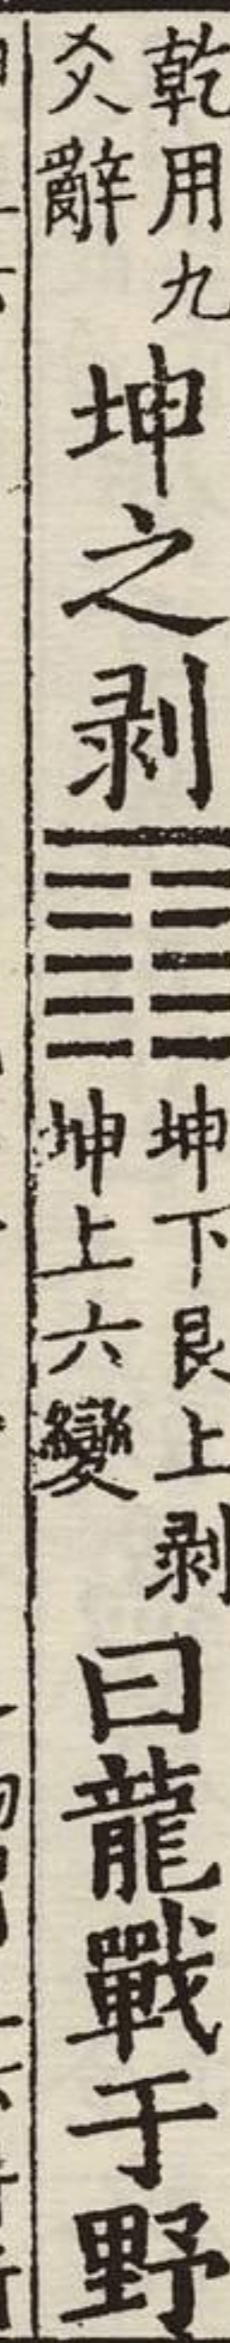 乾用九
爻辭
坤之剥
坤下艮上剥
坤上六變
曰龍戰于野